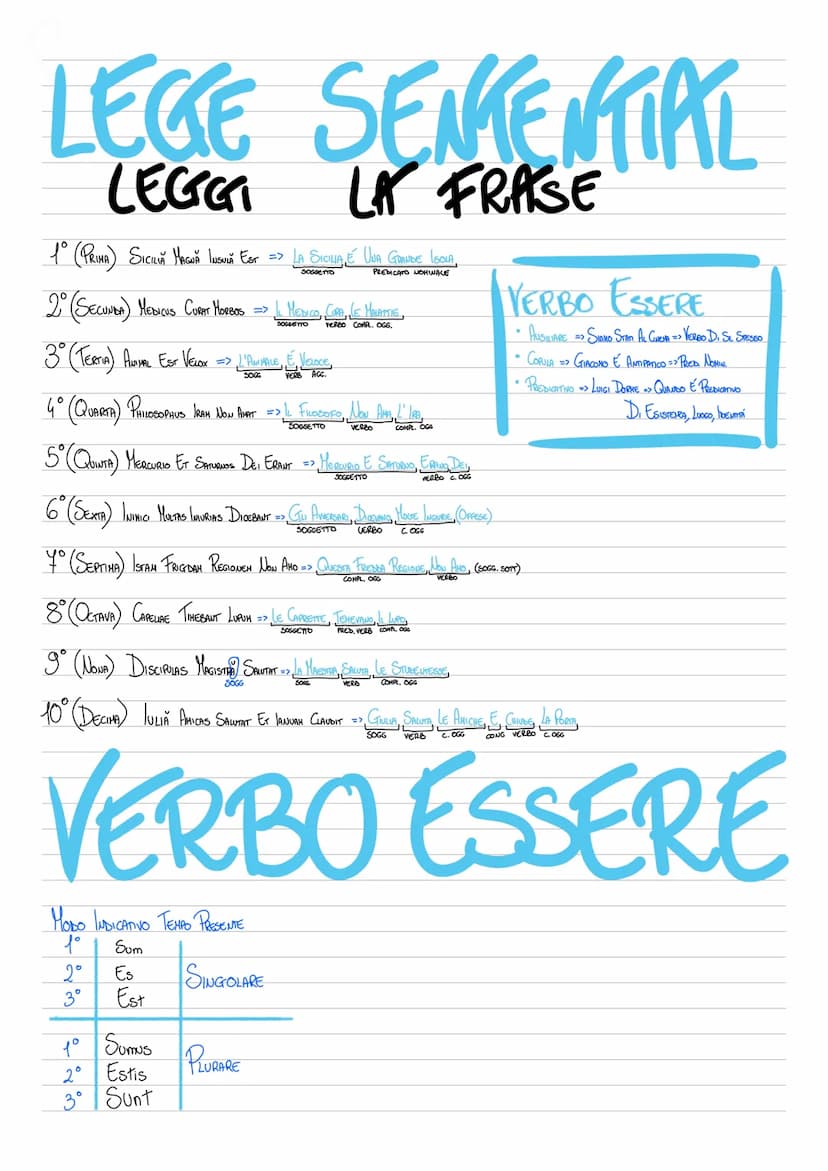 LEGGE SENTENTIAL
LEGGI LA FRASE
1° (PRIMA) SICILIĂ MAGNĂ INSULĂ EST => LA SICILIA É UNA GRANDE ISOLA
SOGGETTO PREDICATO NOMINALE
2° (SECUNDA) MEDICUS CURAT MORBOS => IL MEDICO CURA LE MALATTIE
SOGGETTO VERBO COMPL. OGG.
3° (TERTIA) ANIMAL EST VELOX => L'ANIMALE É VELOCE
SOGG VERB AGG.
4° (QUARTA) PHILOSOPHUS IRAM NON AMAT => IL FILOSOFO NON AMA L'IRA
SOGGETTO VERBO COMPL. OGG
5° (QUINTA) MERCURIO ET SATURNOS DEI ERANT => MERCURIO E SATURNO ERANO DEI
SOGGETTO VERBO C. OGG
6° (SEXTA) INIMICI MULTAS INIURIAS DICEBANT => GLI AVVERSARI DICEVANO MOLTE INGIURIE (OFFESE)
SOGGETTO VERBO C. OGG
7° (SEPTIMA) ISTAM FRIGDAM REGIONEM NON AMO => QUESTA FREDDA REGIONE NON AMO (SOGG. SOTT)
COMPL. OGG VERBO
8° (OCTAVA) CAPELLAE TIMEBANT LUPUM => LE CAPRETTE TEMEVANO IL LUPO
SOGGETTO PRED. VERB COMPL. OGG
9° (NONA) DISCIPULAS MAGISTRĂ SALUTAT => LA MAESTRA SALUTA LE STUDENTESSE
SOGG SOGG VERB COMPL. OGG
10° (DECIMA) IULIĂ AMICAS SALUTAT ET IANUAM CLAUDIT => GIULIA SALUTA LE AMICHE E CHIUDE LA PORTA
SOGG VERB C. OGG CONG VERBO C. OGG
VERBO ESSERE
• AUSILIARE => SIAMO STATI AL CINEMA => VERBO DI SE STESSO
• COPULA => GIACOMO É ANTIPATICO => PRED. NOMIN
• PREDICATIVO => LUIGI DORME => QUANDO É PREDICATIVO
DI ESISTENZA, LUOGO, IDENTITÁ
VERBO ESSERE
MODO INDICATIVO TEMPO PRESENTE
1° Sum
2° Es SINGOLARE
3° Est
1° Sumus
2° Estis PLURARE
3° Sunt